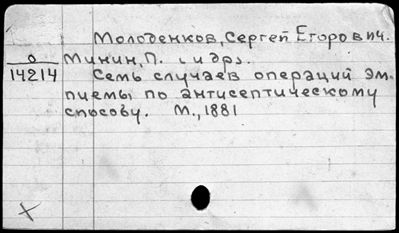 Молоденков, Сергей Егорович.
о Минин, П. и др.
14214 Семь случаев операций эм-
пиемы по антисептическому
способу. М., 1881